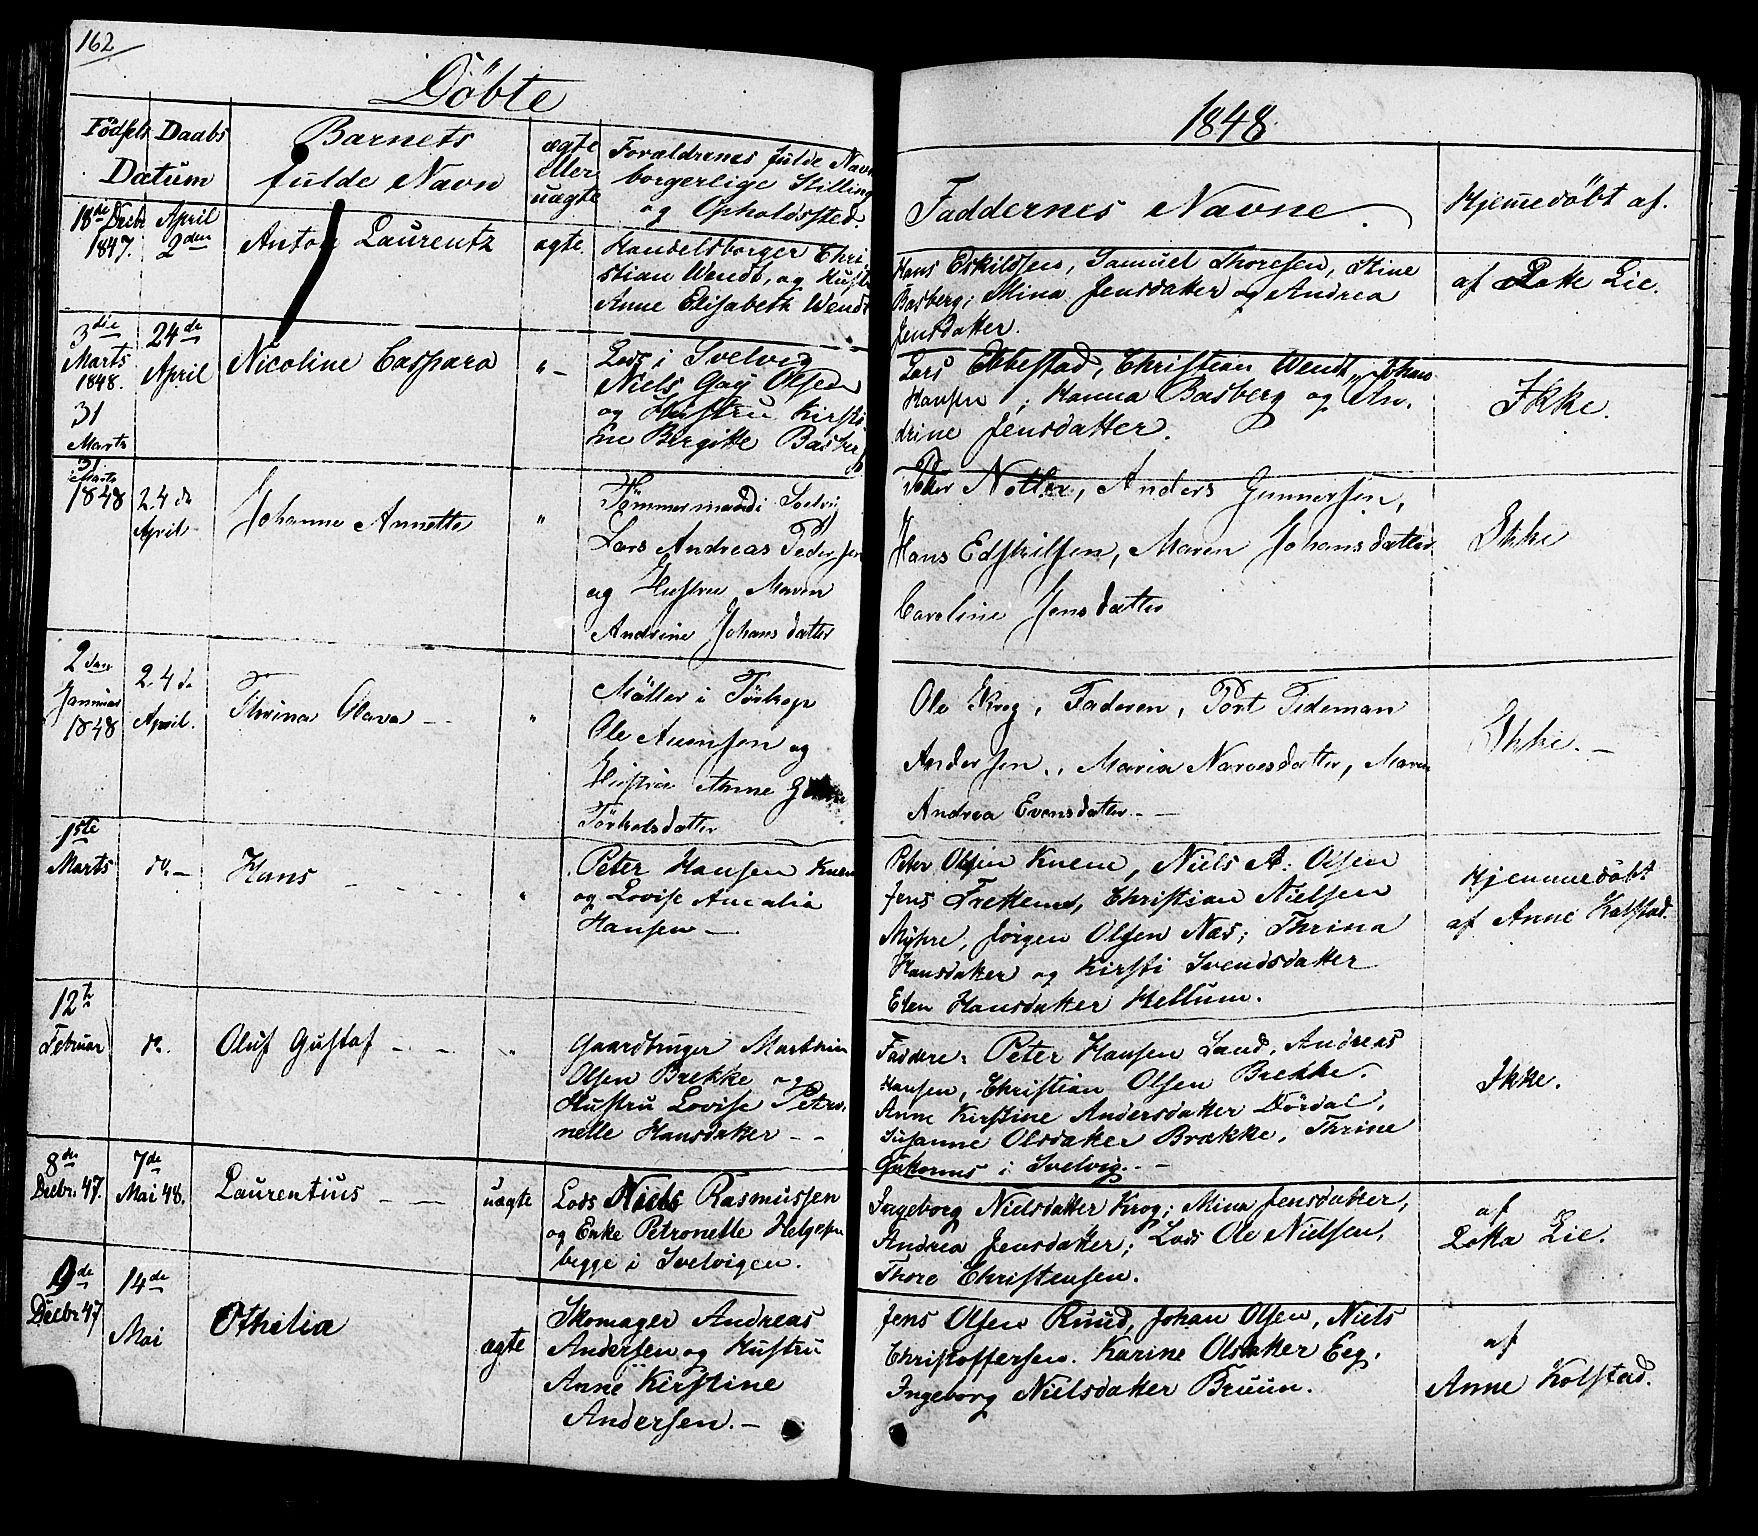 162
Döbte
1848.
Födsels Daabs
Datum
Barnets
fulde Navn
ægte
eller
uægte
Forældrenes fulde Navn
borgerlige Stilling
og Opholdssted.
Faddernes Navne.
Hjemedöbt af.
18de Decbr
1847.
April
2den
Anton Laurentz
ægte.
Handelsborger Chri
stian Wendt, og Hustr
Anne Elisabeth Wendt
Hans Eskildsen, Samuel Thoresen, Stine
Basberg; Mina Jensdatter og Andrea
Jensdatter.
af Lie.
3die
Marts
1848.
31
Marts
24de
April
Nicoline Caspara
" –
Lods i Svelvig
Niels Olsen
og Hustru Kirsti
ne Birgitte Basberg
Lars Ebbestad, Christian Wendt, Johan
Hansen, Hanna Basberg og Olu
drine Jensdatter.
Ikke.
31
Marts
1848
24de
April
Johanne Annette
"
Tömmermand i Svelvig
Lars Andreas Pedersen
og Hustru Maren
Andrine Johansdatter
Peter Nøtler, Anders Gunnersen,
Hans Edskilsen, Maren Johansdatter
Caroline Jensdatter
Ikke
2den
Januar
1848
24de
April.
Thrina Olava – –
"
Möller i
Ole og
Hustru Anne
Ole Krog, Faderen, Tideman
Andersen., Maria Narvesdatter, Maren
Andrea Evensdatter. –
Ikke. –
1ste
Marts
do. –
Hans – – – –
"
Peter Hansen Knem
og Lovise Amalia
Hansen –
Peter Olsen Knem, Niels A. Olsen
Jens Christian Nielsen
Myhre, Jörgen Olsen Næs; Thrina
Hansdatter og Kirsti Svendsdatter
Elen Hansdatter Hellum.
Hjemmedöbt
af Anne Kolstad.
12te
Februar
do.
Oluf Gustaf – – –
"
Gaardbruger Marthin
Olsen Brekke og
Hustru Lovise Petro,
nelle Hansdatter – –
Faddere: Peter Hansen Sand, Andreas
Hansen, Christian Olsen Brekke.
Anne Kirstine Andersdatter Dördal,
Susanne Olsdatter Brække, Thrine
i Svelvig. –
Ikke.
8de
Decbr. 47.
7de
Mai 48.
Laurentius – –
uægte
Lods Niels Rasmussen
og Enke Petronelle Helgesen
begge i Svelvigen.
Ingeborg Nielsdatter Krog; Mina Jensdatter,
Andrea Jensdatter; Lods Ole Nielsen,
Thore Christensen.
af
Lotta Lie.
9de
Decbr. 47
14de
Mai
Othelia
ægte
Skomager Andreas
Andersen og Hustru
Anne Kirstine
Andersen. –
Jens Olsen Ruud, Johan Olsen, Niels
Christoffersen. Karine Olsdatter Eeg,
Ingeborg Nielsdatter Bruun.
af
Anne Kolstad.